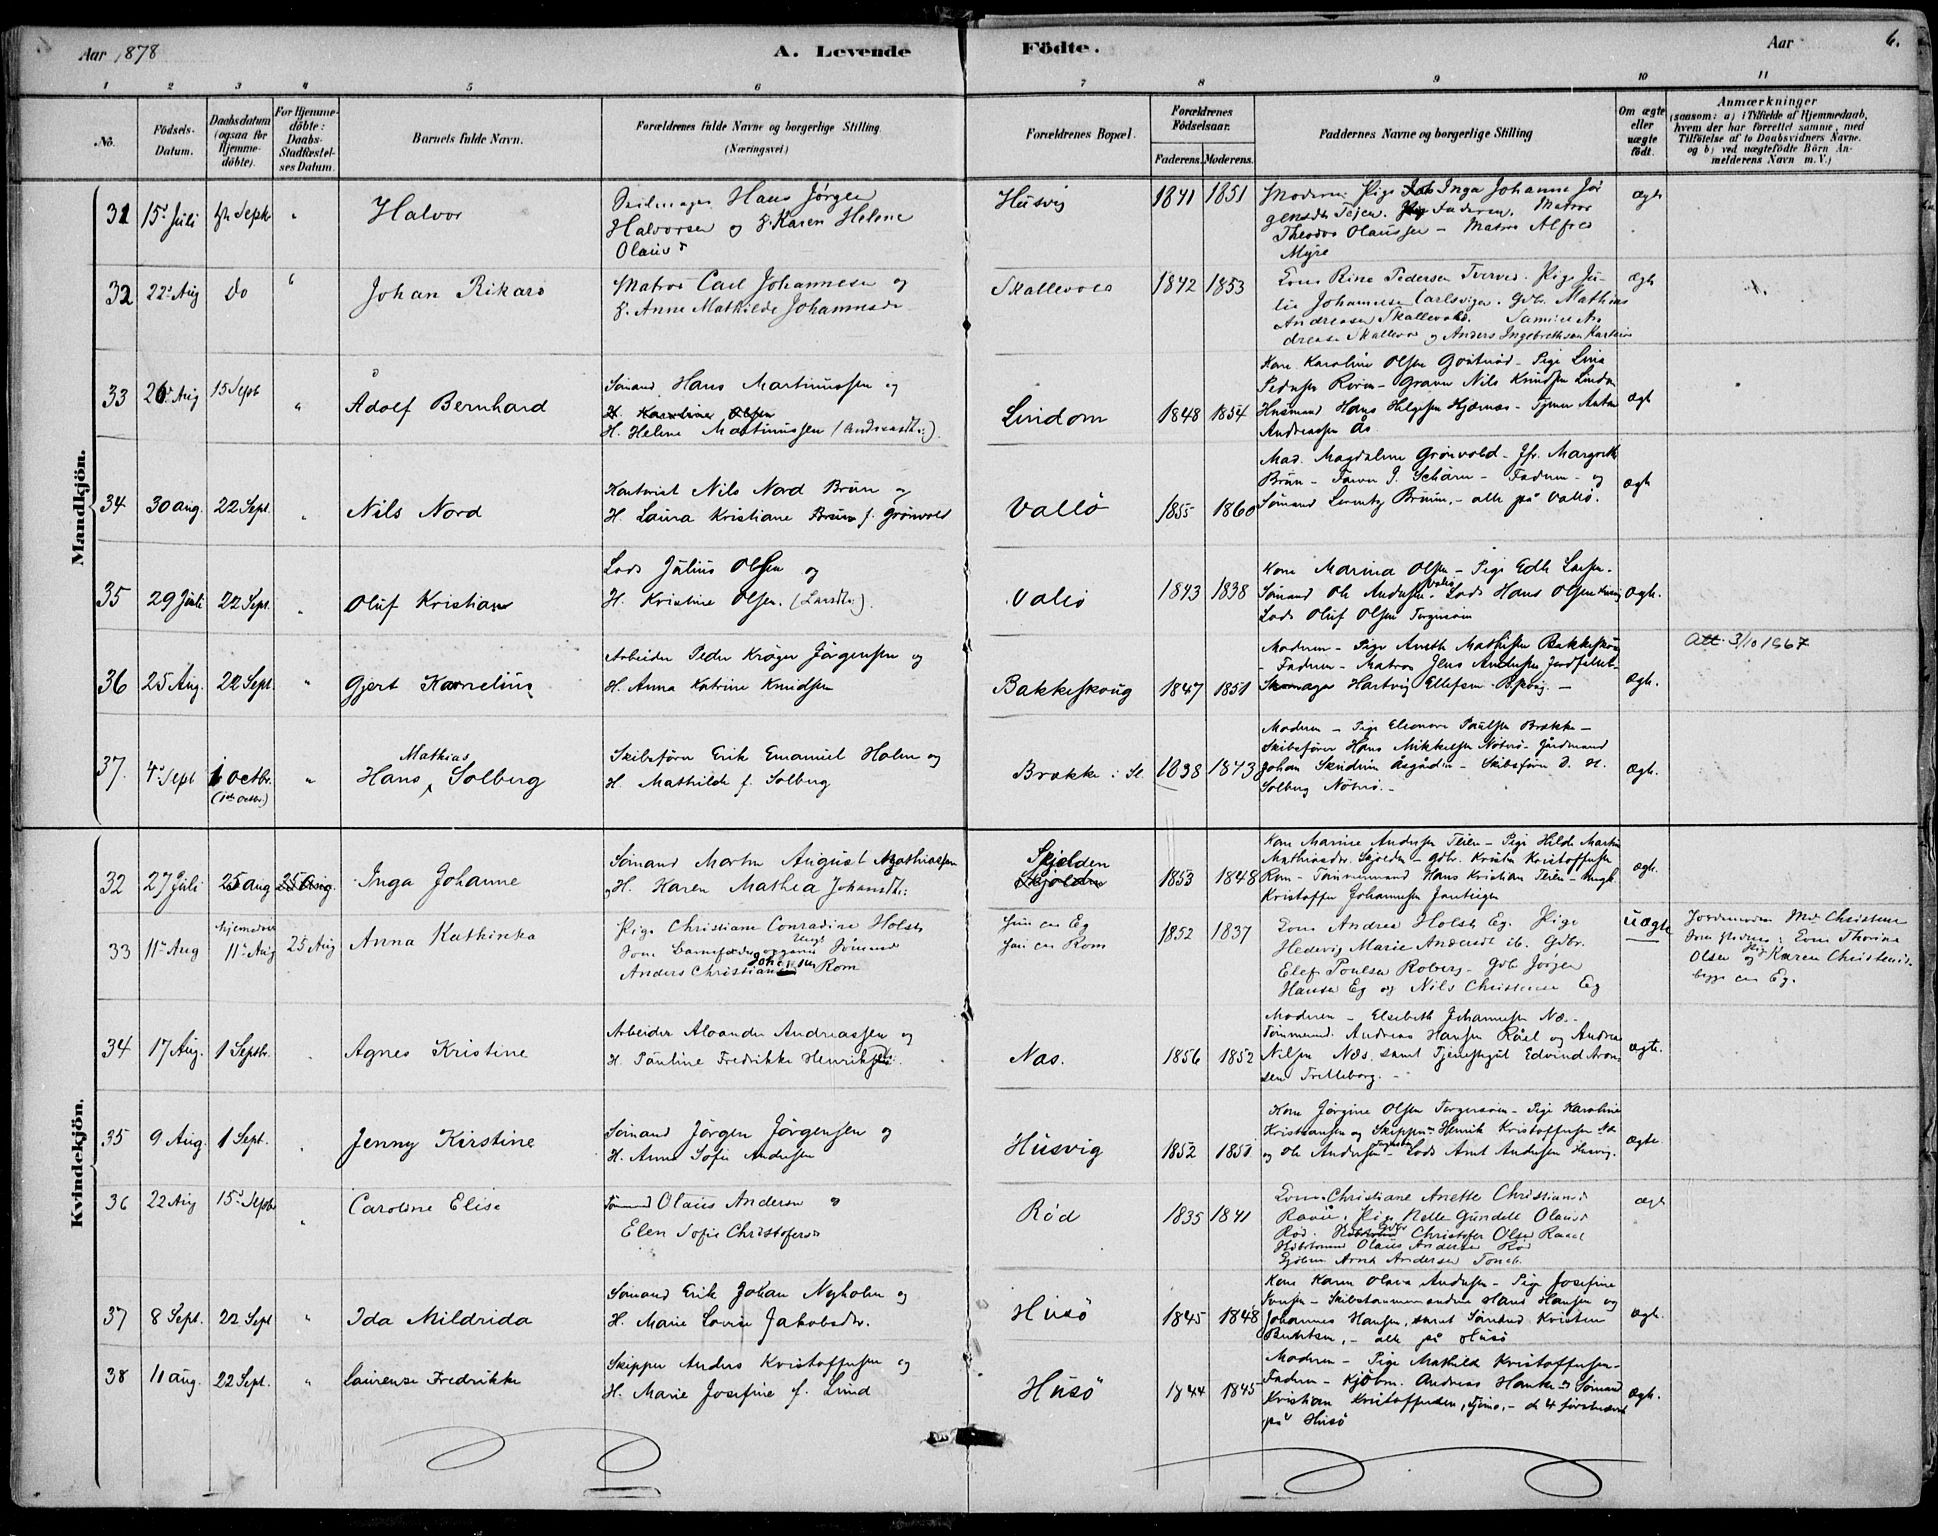 Aar 1878
A. Levende
Födte.
Aar
6.
1 2 3 4 5 6 7 8 9 10 11
No.
Födsels-Datum.
Daabsdatum (ogsaa for Hjemmedöbte).
For Hjemmedöbte: Daabs-Stadfæstelses Datum.
Barnets fulde Navn.
Forældrenes fulde Navne og borgerlige Stilling
(Næringsvei)
Forældrenes Bopæl.
Forældrenes Födselsaar.
Faderens. Moderens.
Faddernes Navne og borgerlige Stilling
Om ægte eller uægte födt.
Anmærkninger
(saasom: a) i Tilfælde af Hjemmedaab, hvem der har forrettet samme, med Tilföielse af to Daabsvidners Navne. og b) ved uægtefödte Börn Anmelderens Navn m. V.)
Mandkjön.
31 15' Juli Sept " Halvor
Hans Jørgen
Halvorsen og H. Karen Helene
Olausd
Husvig 1841 1851
Moderen, Pige Inga Johanne Jør
gensdt Teien. Faderen. Matros
Theodor Olaussen - Matros Alfred
Myre
ægte
32 22' Aug Do " Johan Rikard
Matros Carl Johannesen og
H. Anne Mathilde Johannesdt
Skallevold 1842 1853
Kone Rine Pedersen Tverved. Pige Ju-
lie Johannesen Carlsvigen. Gdbr. Mathias
Andreasen Skallevold. An
dreasen Skallevold og Anders Ingebrethsen
ægte
33 26' Aug 15 Sept " Adolf Bernhard
Sømand Hans Martinussen og
H. Karoline Olsen
H. Helene Martinussen (Andreasdtr.)
Lindom 1848 1854
Kone Karoline Olsen - Pige Lina
Pedersen - Graver Nils Knudsen Lindom
Husmand Hans Helgesen Hjærnæs - Tjener Anton
Andreassen Ås.
ægte
34 30 aug. 22 Sept. " Nils Nord
Kontorist Nils Nord Brun og
H. Laura Kristiane Brun f. Grønvold
Vallö 1855 1860
Mad. Magdalene Grønvold - Jfr. Margrethe
Brun - Farver J. Schørn - Faderen - og
Sømand Lorentz Bruun, - alle på Vallö.
ægte
35 29 Juli 22 Sept. " Oluf Kristian
Lods Julius Olsen og
H. Kristine Olsen. (Larsdtr.)
Vallö 1843 1838
Kone Marina Olsen - Pige Edle Larsen.
Sømand Ole Andersen Vallö. Lods Hans Olsen Husvig
Lods Oluf Olsen Torgersøen
ægte.
36 25 Aug. 22 Sept. " Gjert Kornelius
Arbeider Peder Krøger Jørgensen og
H. Anna Katrine Knudsen
Bakkeskoug 1847 1851
Moderen - Pige Aneth Mathisen Bakkeskoug
- Faderen - Matros Jens Andersen
Skomager Hartvig Ellefsen
ægte.
Att. 3/10 1867
37. 4' Sept 6 octbr. " Hans Mathias Solberg
Skibsfører Erik Emanuel Holm og
H. Mathilde f. Solberg
Brække i Sl. 1838 1843
Moderen - Pige Eleonore Paulsen Brække -
Skibsfører Hans Mikkelsen Nötterö - Gårdmand
Johan Åsgården - Skibsfører D. H.
Solberg Nötterö. -
ægte.
Kvindekjön.
32 27 Juli 25 aug 25 Aug. Inga Johanne
Sømand Martin August Mathiassen
og H. Karen Mathea Johansdtr.
Skjelden
Skjolden
1853 1848
Kone Marine Andersen Teien - Pige Hilda Martin
Mathiasdr. Skjelden - Gdbr. Kristen Kristoffersen
Rom - Tømmermand Hans Kristian Teien - ungk.
Kristoffer Johannesen
ægte.
33 11' Aug hjemdøbt 11' Aug 25 Aug Anna Kathinka
Pige Christiane Conradine Holst
Som Barnefader opgiven Ungk Sømand
Anders Christian Johansen Rom
Hun er Eg
Han er Rom
1852 1837
Kone Andrea Holst Eg. Pige
Hedevig Marie Andersdt ib. Gdbr.
Elef Poulsen Roberg. Gdb Jørgen
Hansen Eg og Nils Christensen Eg
uægte
Jordemoder Md. Christensen
Kone Thorine
Olsen og Pige Karen Christensdt.
begge en Eg.
34 17 Aug. 1 Septbr. Agnes Kristine
Arbeider Alexander Andreassen og
H. Pauline Fredrikke Henriksdtr.
Nas. 1856 1852
Moderen - Elsebeth Johannesen Næs -
Tømmermd. Andreas Hansen Råel og Andreas
Nilsen Næs samt Tjenestegut Edvind Aron-
sen Trelleborg. -
ægte.
35 9 Aug. 1 Sept. Jenny Kirstine
Sømand Jörgen Jörgensen og
H. Anne Sofie Andersen
Husvig 1852 1851
Kone Jørgine Olsen Torgersøen - Pige Karoline
Kristiansen og Skipper Henrik Kristoffersen
og Ole Andersen Torgersøen - Lods Arnt Andersen Husvig.
ægte
36 22 Aug 15' Septbr " Caroline Elise
Tømmermd Olaus Andersen og
Elen Sofie Christofersdt
Rød 1835 1841
Kone Christiane Anette Christiansdt
Ravne. Pige Nelle Gundelle Olausdt
Rød. Gdbr Christofer Olsen Raael
Olaus Andersen Rød
Arnt Andersen
ægte
37 8 Sept. 22 Sept " Ida Mildrida
Sømand Erik Johan Nyholm og
H. Marie Lovise Jakobsdr.
Husö 1845 1848
Kone Karen Olava Andersen - Pige Josefine
Jensen - Skibstømmermændene Hans Hansen og
Johannes Hansen, samt Sømand Kristen
Berntsen, - alle på Husö
ægte.
38 11 aug. 22 Sept. " Laurense Fredrikke
Skipper Anders Kristoffersen og
H. Marie Josefine f. Lind
Husö 1844 1845
Moderen - Pige Mathilde Kristoffersen -
Faderen - Kjöbm. Andreas Hanke og Sømand
Kristian Kristoffersen, Tjömö, - de 4 förstnævnte
på Husö
ægte.